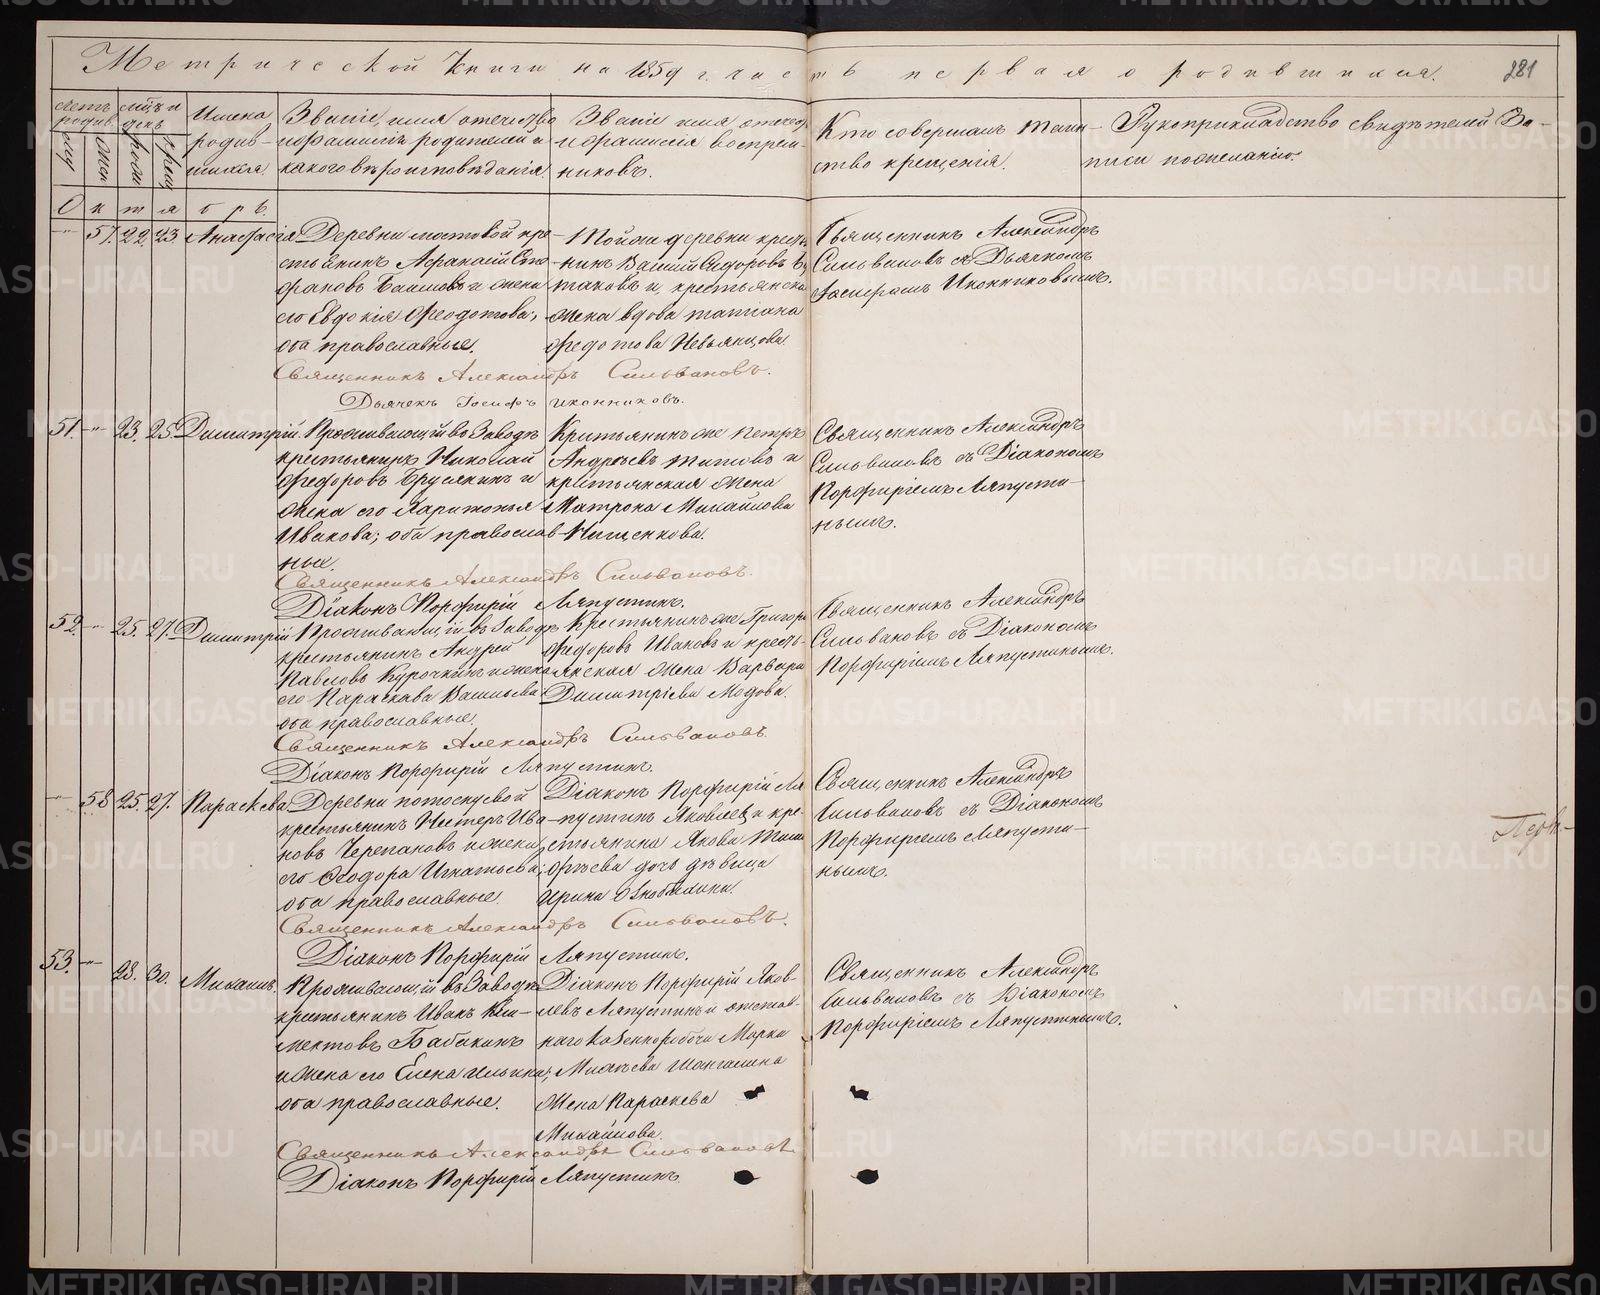 Метрической Книги на 1859 г. часть первая о родившихся. 281
Имена родившихся
Званіе, имя отечество
и фамилія родителей и
какого вѣроисповѣданія
Званіе имя отечес.
и фамилія воспрем-
никовъ.
Кто совершалъ таин-
ство крещенія.
Рукоприкладство свидѣтелей за-
писи по желанію.
Октябрь.
57. 22. 23. Анастасія
Деревни мостовой кре-
стьянинъ Афанасій
и жена
его Евдокія Федотова;
оба православные.
Тойже деревни кресть-
нинъ Василій Сидоровъ
и крестьянска
жена вдова татіана
федотова Невьянцова.
Священникъ Александръ
Сильвановъ съ Дьячкомъ
Іосифомъ Иконниковымъ.
Священникъ Александръ Сильвановъ.
Дьячекъ Іосифъ Иконниковъ.
51. 23. 25. Димитрій.
Проживающій въ Заводѣ
крестьянинъ Николай
Федоровъ Бруснякинъ и
жена его Харитонья
Иванова; оба православ-
ные.
Крестьянинъ же Петръ
Андреевъ Титовъ и
крестьянская жена
Матрона Михайлова
Священникъ Александръ
Сильвановъ съ Діакономъ
Порфиріемъ Ляпусти-
нымъ.
Священникъ Александръ Сильвановъ.
Діаконъ Порфирій Ляпустинъ.
52. 25. 27. Димитрій
Проживающій въ Заводѣ
крестьянинъ Андрей
Павловъ Курочкинъ и жена
его Параскава Васильева
оба православные.
Крестьянинъ же Григорій
Федоровъ Ивановъ и кресть-
янская жена Варвара
Димитріева
Священникъ Александръ
Сильвановъ съ Діакономъ
Порфиріемъ Ляпустинымъ.
Священникъ Александръ Сильвановъ.
Діаконъ Порфирій Ляпустинъ.
58 25. 27. Параскева
Деревни потоскуевой
крестьянинъ Нестеръ Ива-
новъ Черепановъ и жена
его Феодора Игнатьева;
оба православные.
Діаконъ Порфирій Ля-
пустинъ Яковлевъ и кре-
стьянина Якова Тимо-
феева дочь дѣвица
Ирина
Священникъ Александръ
Сильвановъ съ Діакономъ
Порфиріемъ Ляпусти-
нымъ.
Священникъ Александръ Сильвановъ.
Діаконъ Порфирій Ляпустинъ.
53. 28. 30. Михаилъ.
Проживающій въ Заводѣ
крестьянинъ Иванъ Кли-
ментовъ Бабкинъ
и жена его Елена Ильина;
оба православные.
Діаконъ Порфирій Яков-
левъ Ляпустинъ и отстав-
наго Марка
жена Параскева
Михайлова.
Священникъ Александръ
Сильвановъ съ Діакономъ
Порфиріемъ Ляпустинымъ.
Священникъ Александръ Сильвановъ
Діаконъ Порфирій Ляпустинъ.
METRIKI.GASO-URAL.RU